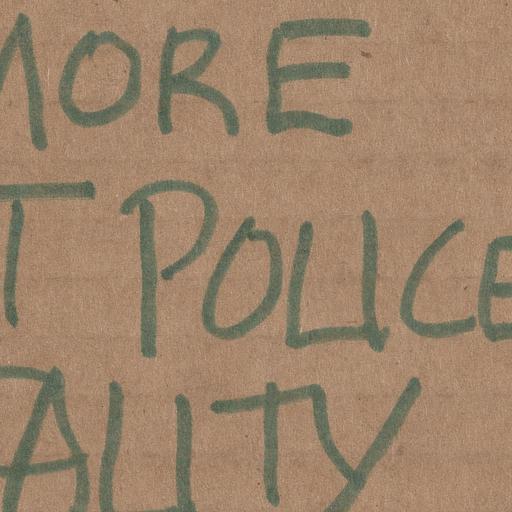 MORE
T POLICE
ALITY